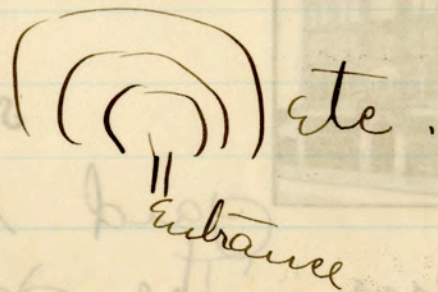 etc.
Entrance